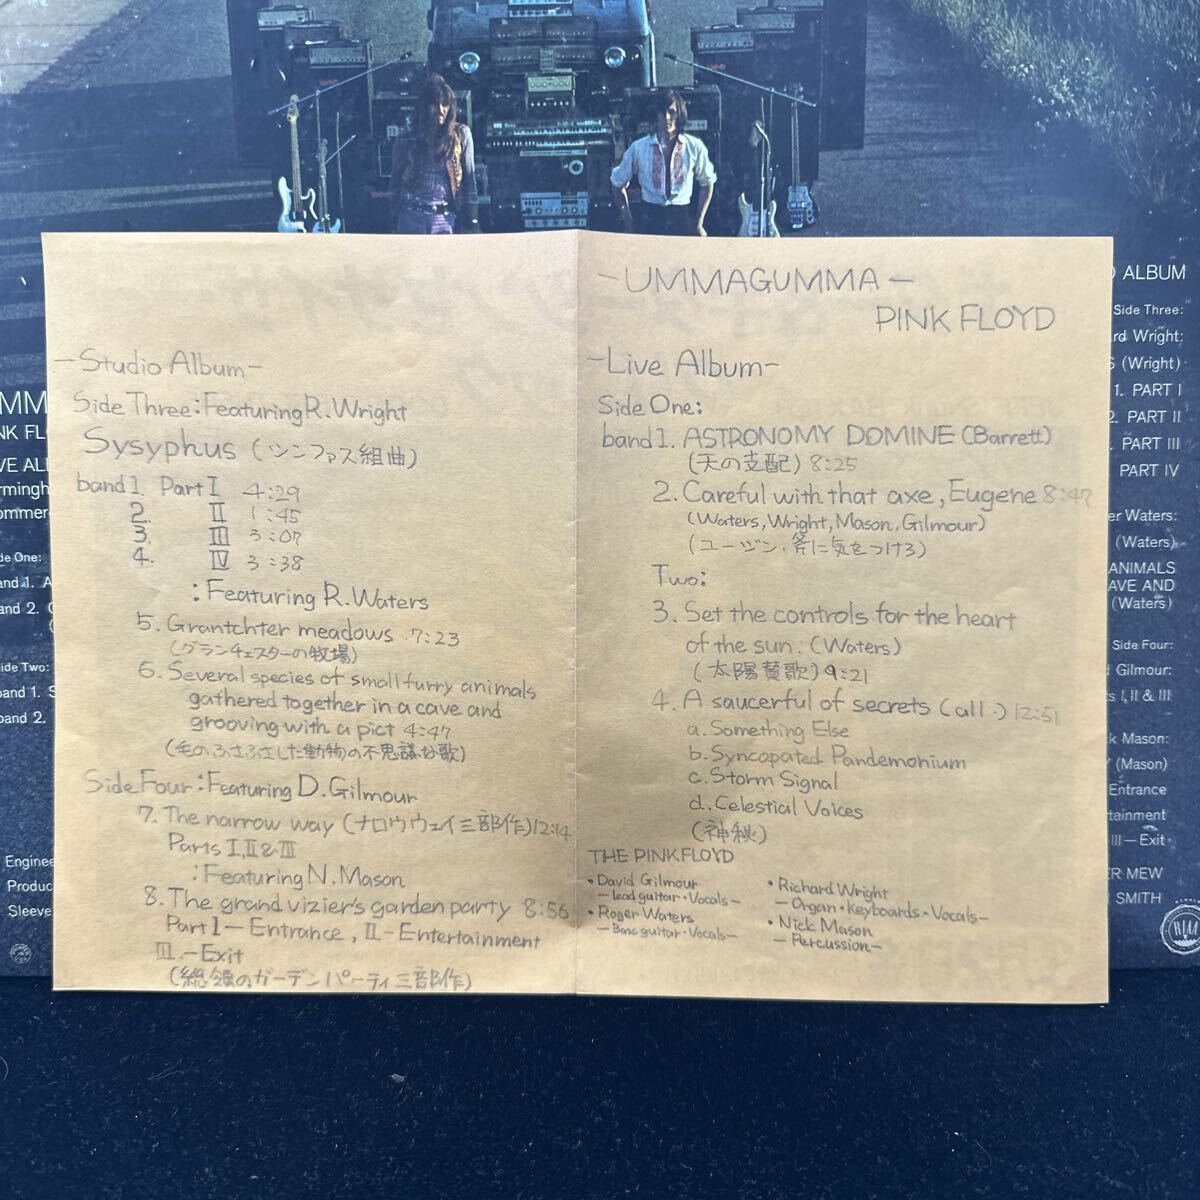 -UMMAGUMMA-
PINK FLOYD
-Studio Album-
Side Three:Featuring R.Wright
Sysyphus (シンファス組曲)
band 1. Part I 4:29
2. II 1:45
3. III 3:07
4. IV 3:38
:Featuring R.Waters
5. Grantchter meadows 7:23
(グランチェスターの牧場)
6. Several species of small furry animals
gathered together in a cave and
grooving with a pict 4:47
(毛のふさふさした動物の不思議な歌)
Side Four:Featuring D.Gilmour
7. The narrow way (ナロウウェイ三部作) 12:14
Parts I,II & III
:Featuring N.Mason
8. The grand vizier's garden party 8:56
Part I-Entrance, II-Entertainment
III.-Exit
(総領のガーデンパーティ三部作)
-Live Album-
Side One:
band 1. ASTRONOMY DOMINE (Barrett)
(天の支配) 8:25
2. Careful with that axe, Eugene 8:47
(Waters, Wright, Mason, Gilmour)
(ユージン・斧に気をつけろ)
Two:
3. Set the controls for the heart
of the sun. (Waters)
(太陽賛歌) 9:21
4. A saucerful of secrets (all.) 12:51
a. Something Else
b. Syncopated Pandemonium
c. Storm Signal
d. Celestial Voices
(神秘)
THE PINKFLOYD
• David Gilmour
-Lead guitar・Vocals-
• Roger Waters
-Bass guitar・Vocals-
• Richard Wright
-Organ・Keyboards・Vocals-
• Nick Mason
-Percussion-
ALBUM
Side Three:
Wright:
(Wright)
1. PART I
2. PART II
PART III
PART IV
Waters:
(Waters)
ANIMALS
AVE AND
(Waters)
Side Four:
Gilmour:
I, II & III
Mason:
(Mason)
Entrance
tainment
III—Exit
MEW
SMITH
MM
NK FL
VE AL
rmingh
ommer
de One:
and 1. A
and 2.
ide Two:
and 1. S
and 2.
Enginee
Produc
Sleeve
RIAA